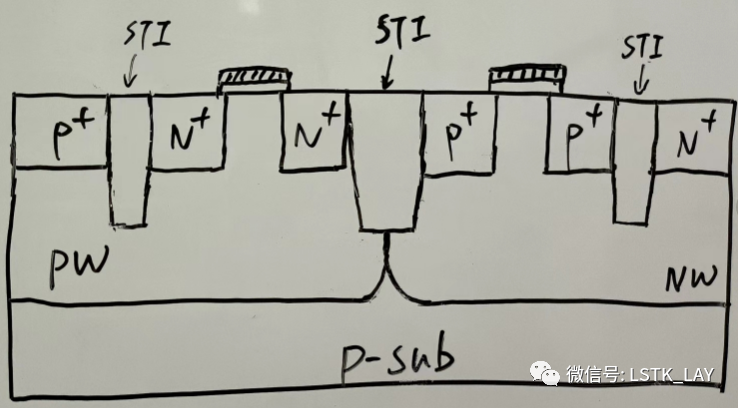 STI
STI
STI
P+
N+
N+
P+
P+
N+
PW
NW
P-sub
微信号: LSTK_LAY